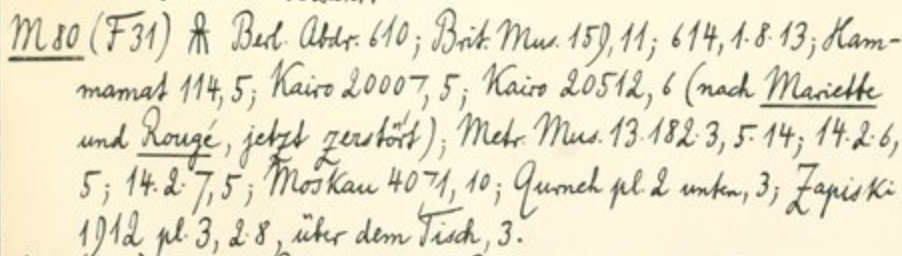 M 80 (F 31) 𓄟 Berl. Abdr. 610; Brit. Mus. 159, 11; 614, 1·8·13; Ham-
mamat 114, 5; Kairo 20007, 5; Kairo 20512, 6 (nach Mariette
und Rougé, jetzt zerstört); Metr. Mus. 13·182·3, 5·14; 14·2·6,
5; 14·2·7, 5; Moskau 4071, 10; Qurneh pl. 2 unten, 3; Zapiski
1912 pl. 3, 2·8, über dem Tisch, 3.